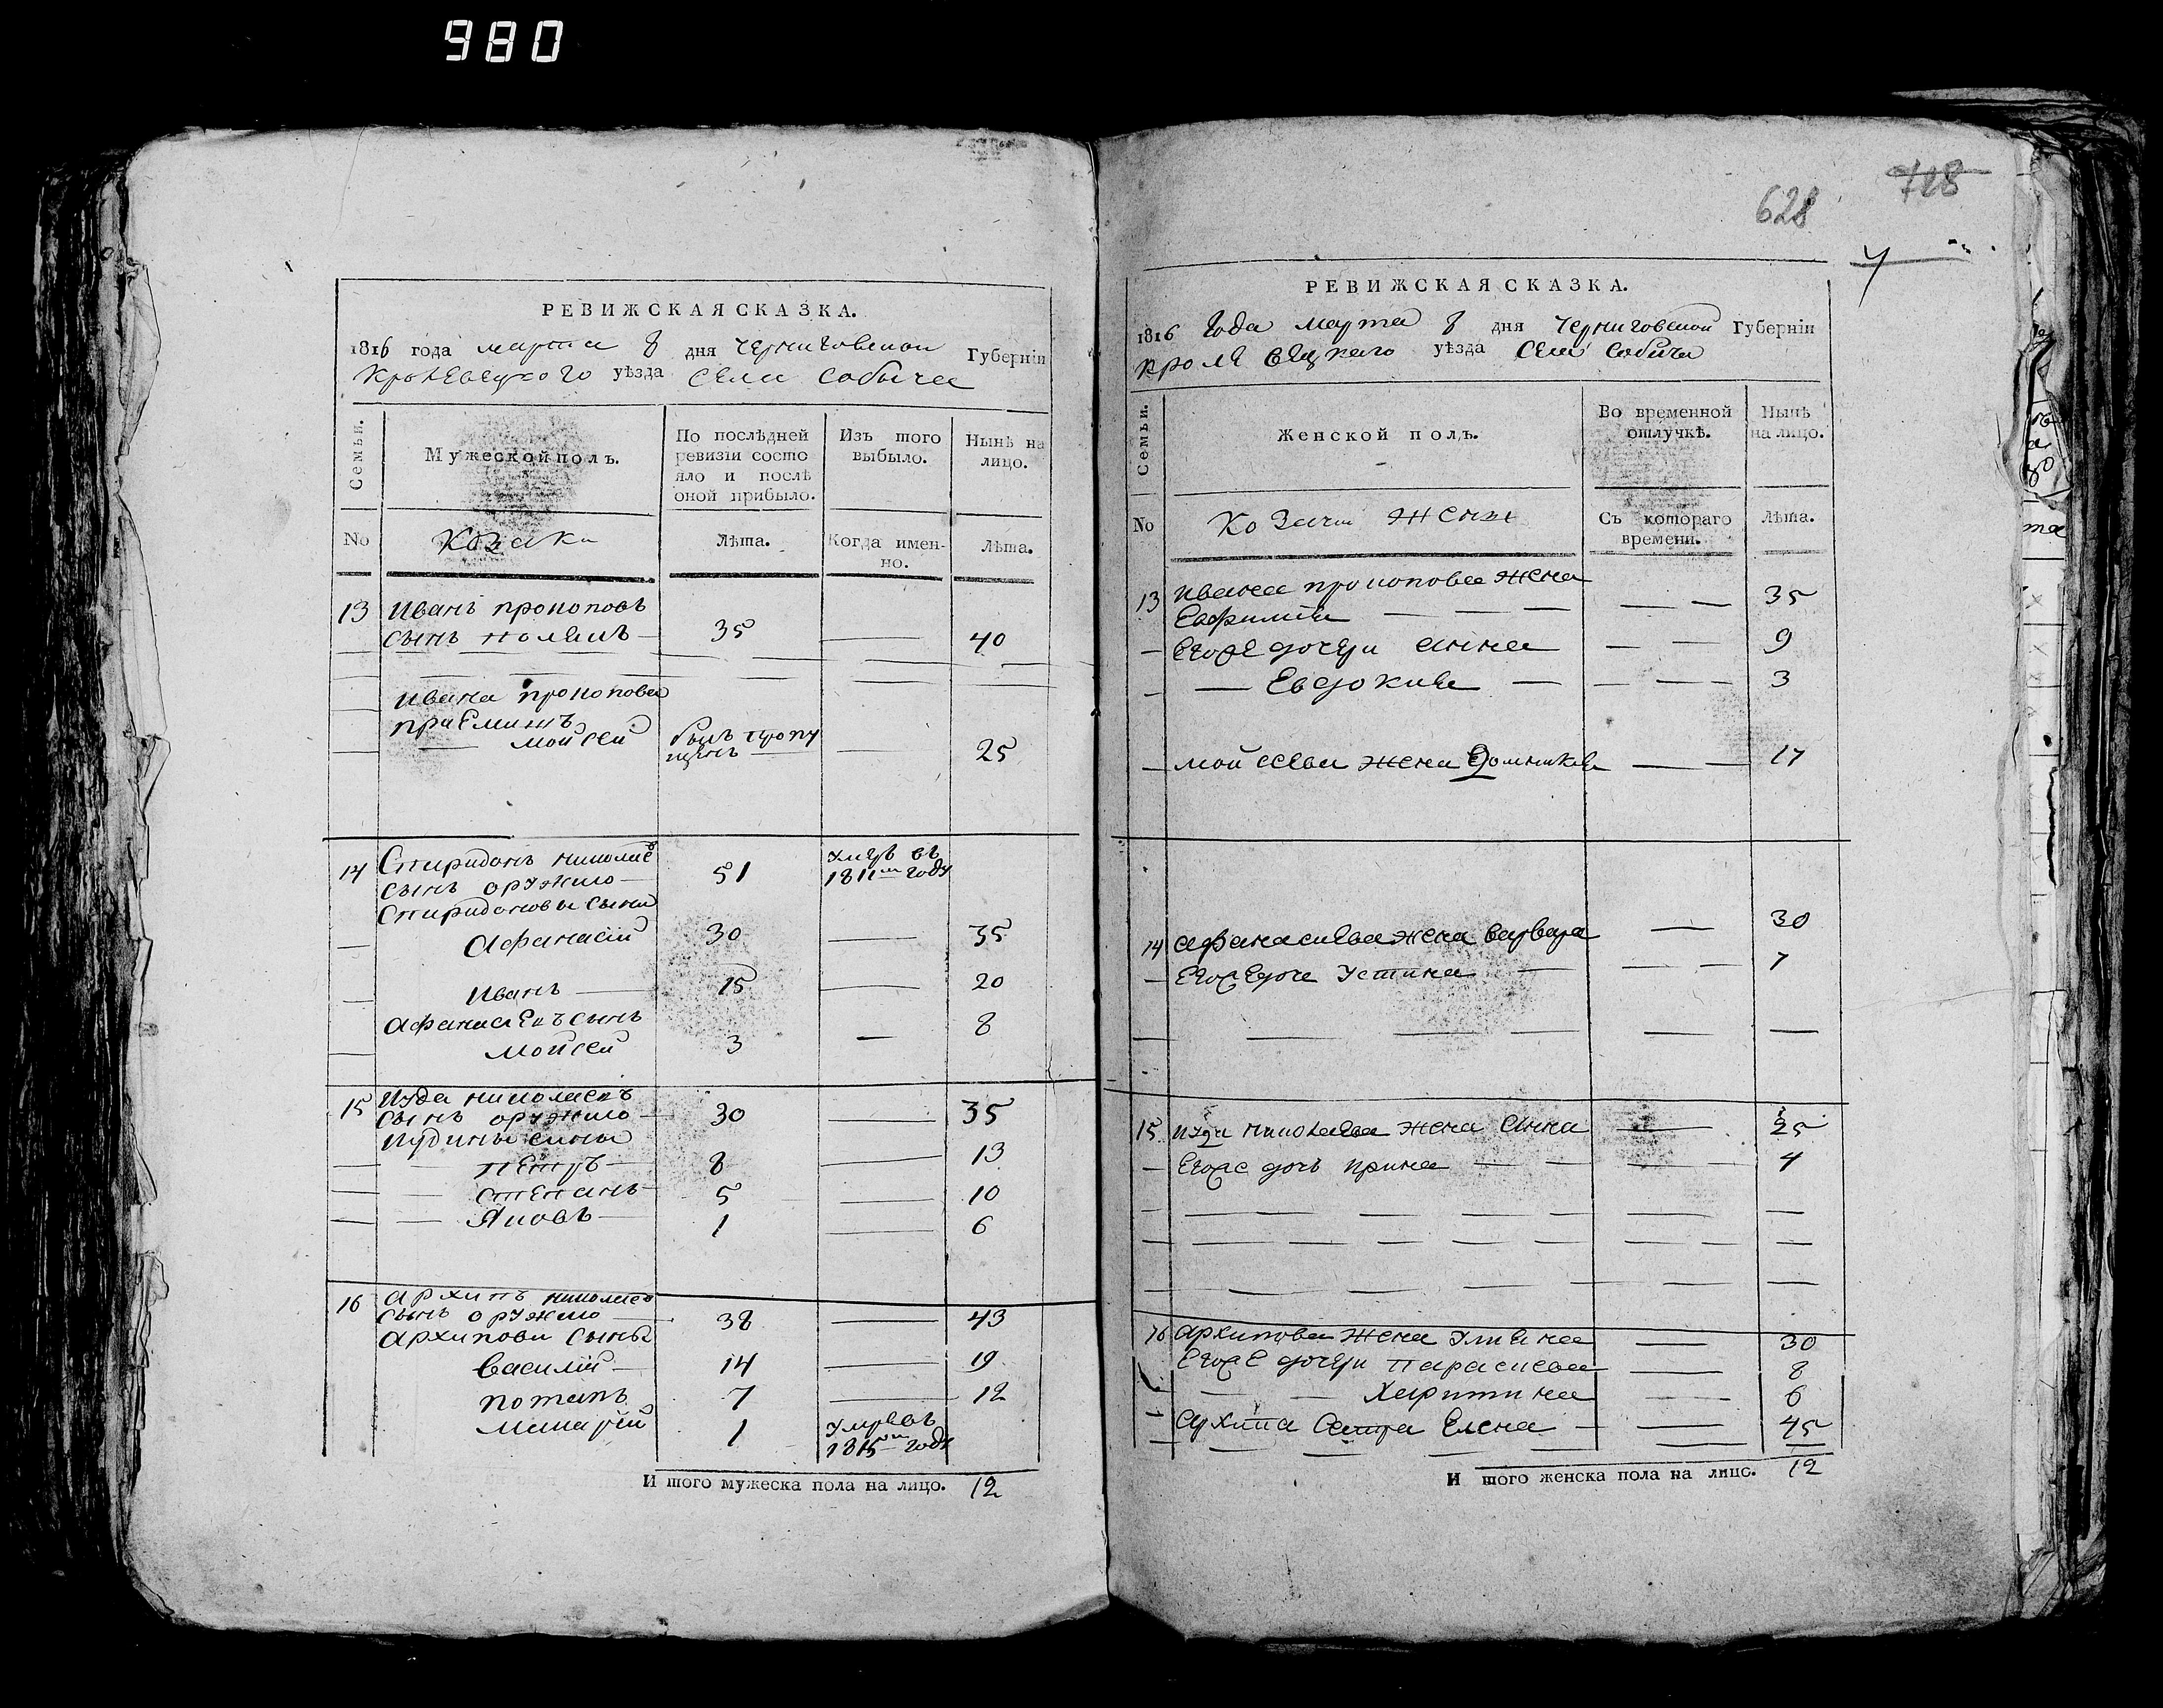 980
РЕВИЖСКАЯ СКАЗКА.
1816 года марта 8 дня Черниговской Губерніи
Кролевецкого уѣзда села Собича
Семьи.
Мужеской полъ.
По послѣдней ревизіи состо
яло и послѣ
оной прибыло.
Изъ того
выбыло.
Нынѣ на
лицо.
No
Козаки
Лѣта.
Когда имен-
но.
Лѣта.
13 Иванъ прокоповъ
сынъ 35 — 40
Ивана прокопова
приемишъ
мойсей былъ пропу
щенъ — 25
14 Спиридонъ николаев
сынъ оружко 51 умеръ въ
1811м году
Спиридоновы сыны
Афанасій 30 — 35
Иванъ — 15 — 20
Афанасиевъ сынъ
Мойсей 3 — 8
15 Иуда николаевъ
сынъ оружко 30 — 35
Иудины сины
петръ 8 — 13
степанъ 5 — 10
Яковъ 1 — 6
16 архипъ николаев
сынъ оружко 38 — 43
архипови сыны
василій 14 — 19
потапъ 7 — 12
макарій 1 умре въ
1815м году
И того мужеска пола на лицо. 12
628
728
РЕВИЖСКАЯ СКАЗКА.
1816 года марта 8 дня черниговской Губерніи
кролевецкаго уѣзда села собича
Семьи.
Женской полъ.
Во временной
отлучкѣ.
Нынѣ
на лицо.
No
Козачи жены
Съ котораго
времени.
Лѣта.
13 ивана прокопова жена
Евфимія — — — 35
Егоже дочери анна — — 9
— Евдокия — — — 3
мойсеева жена Домникия — — 17
14 афанасиева жена варвара — 30
Егоже доче Устина — — 7
15 иуди николаева жена анна — 25
Егоже дочь ирина — — 4
16 архипова жена Улияна — 30
Егоже дочери параскева — 8
— — Харитина — 6
архипа сестра Елена — 45
И того женска пола на лицо. 12